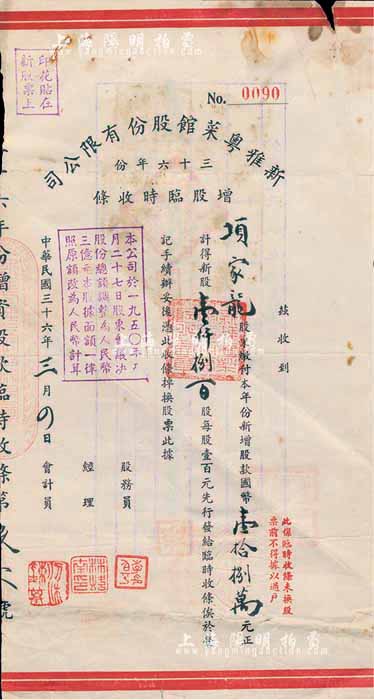 上海陽明拍賣
印花貼在
新股票上
No. 0090
新雅粵菜館股份有限公司
三十六年份
增股臨時收條
茲收到
項家龍 股東繳付本年份新增股款國幣壹拾捌萬元正
計得新股壹仟捌百股每股壹百元先行發給臨時收條俟於
記手續辦妥後憑此收條掉換股票此據
股務員
經理
會計員
中華民國三十六年三月 日
本公司於一九五〇年
月二十七日股東會議決
股份總額調整為人民幣
三億元本股據面額一律
照原額改為人民幣計算
此係臨時收條未換股
票前不得據以過戶
六年份增資股款臨時收條第 號
上海陽明拍賣
www.yangmingauction.com